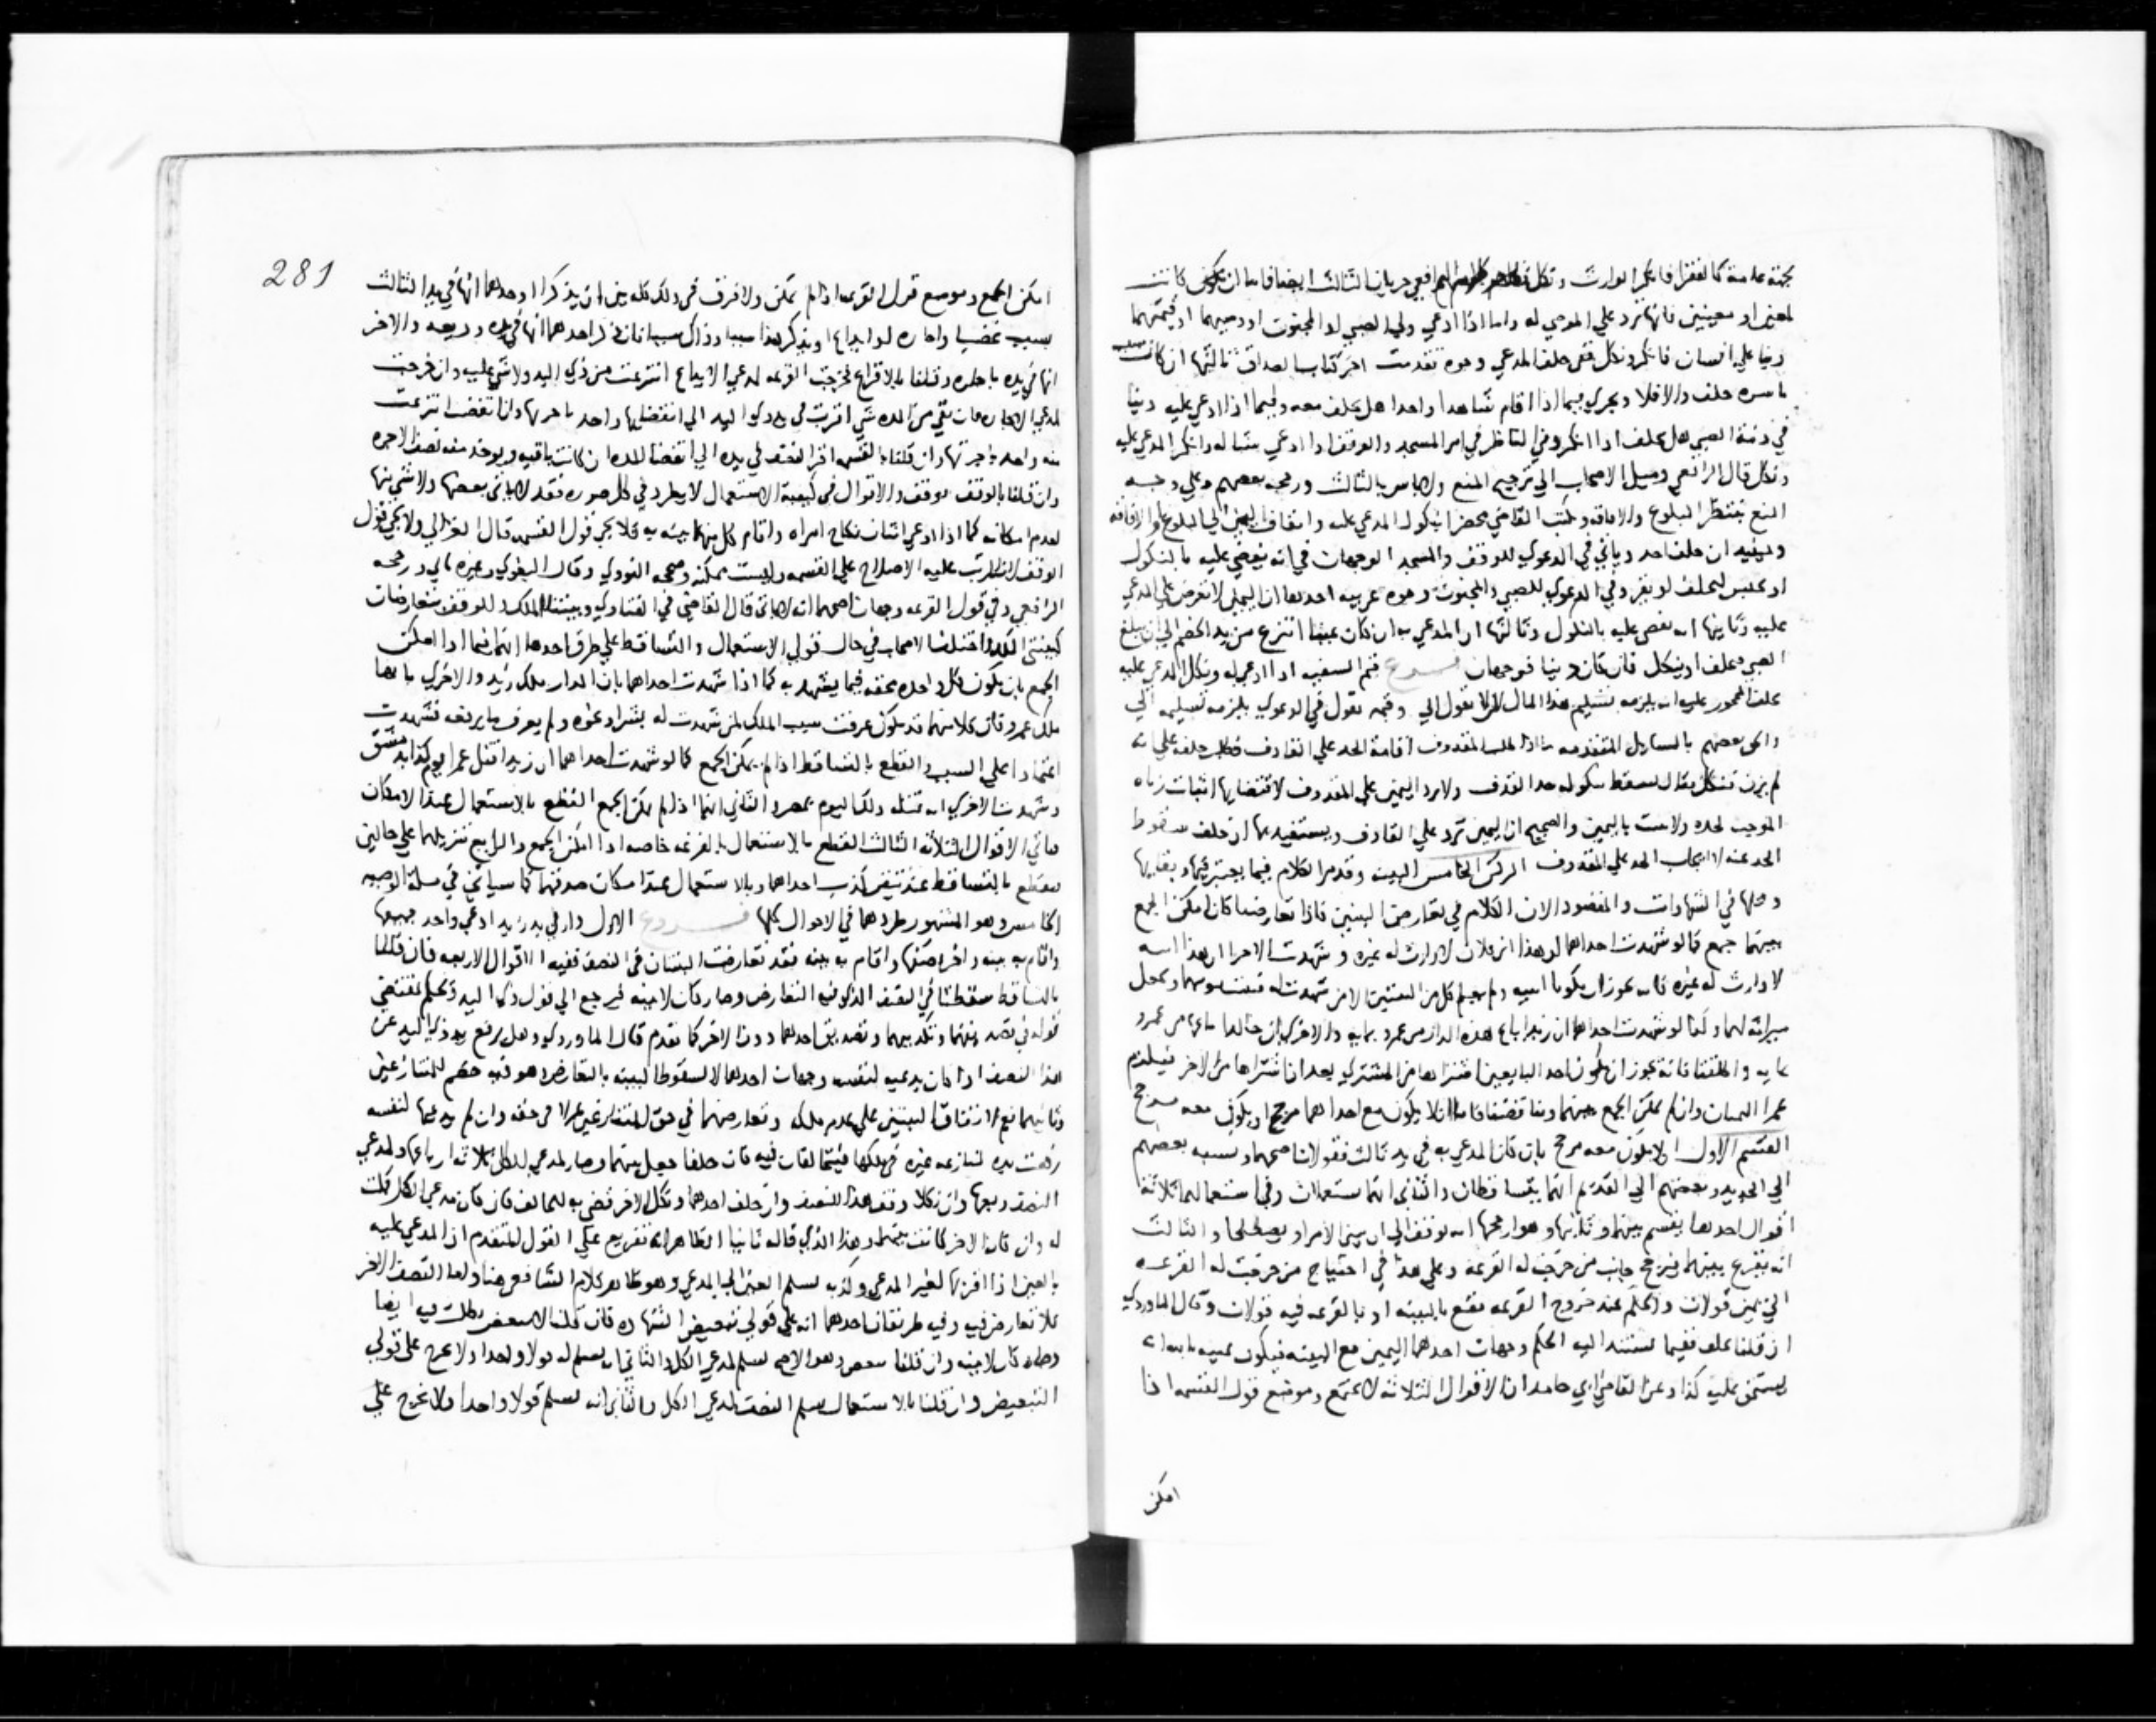 بجهة عامة كالفقرا فانكر الوارث ونكل فظاهر كلامهم جريان الثالث ايضا فاما ان كانت
لمعين او معينين فانها ترد علي الموصي له واما اذا ادعي ولي الصبي او المجنون او وصيهما او قيمهما
دينا علي انسان فانكر ونكل ففي حلف المدعي وجوه تقدمت اخر كتاب الصداق ثالثها ان كانت
ما سره حلف والا فلا ويجري فيما اذا اقام شاهدا واحدا هل يحلف معه وفيما اذا ادعي عليه دينا
في ذمة الصبي هل يحلف اذا انكر وفي الناظر في امر المسجد والوقف اذا ادعي شيا له وانكر المدعي عليه
ونكل قال الرافعي وميل الاصحاب الي ترجيح المنع ولا باس بالثالث ورجحه بعضهم وعلي وجه
المنع ينتظر البلوغ والافاقة ويكتب القاضي محضرا بنكول المدعي عليه وايقاف اليمين الي البلوغ والافاقة
ان حلف احد وياتي في الدعوي للوقف والمسجد الوجهان في انه يقضي عليه بالنكول
او يحبس ليحلف او يقر وفي الدعوي للصبي والمجنون وجوه غريبه احدها ان اليمين لا تعرض علي المدعي
عليه وثانيها انه يقضي عليه بالنكول وثالثها ان المدعي به ان كان عينا انتزع من يد الخصم الي ان يبلغ
الصبي فيحلف او ينكل فان كان دينا فوجهان فرع قيم السفيه اذا ادعي له ونكل المدعي عليه
حلف المحجور عليه انه يلزمه تسليم هذا المال ولا يقول الي وقيمه يقول في الدعوي يلزمه تسليمه الي
والحق بعضهم بالمسايل المتقدمه ما اذا طلب المقذوف اقامة الحد علي القاذف فطلب حلفه علي انه
لم يزن فنكل فقال يسقط بنكوله حد القذف ولا يرد اليمين علي المقذوف لاقتضايها اثبات زناه
الموجب لحده ولا يثبت باليمين والصحيح ان اليمين ترد علي القاذف ويستفيد بها ان حلف سقوط
الحد عنه لا ايجاب الحد علي المقذوف الركن الخامس البينه وقد مر الكلام فيما يعتبر فيها وبقايها
ومحلها في الشهادات والمقصود الان الكلام في تعارض البينتين فاذا تعارضتا فان امكن الجمع
بينهما جمع كما لو شهدت احداهما ان هذا ابن فلان لا وارث له غيره وشهدت الاخري ان هذا ابنه
لا وارث له غيره فانه يجوز ان يكونا ابنيه ولم تعلم كل من البينتين الا من شهدت له فيثبت نسبهما ويجعل
ميراثه لهما وكما لو شهدت احداهما ان زيدا باع هذه الدار من عمرو بمايه والاخري ان خالدا باعها من عمرو
بمايه واطلقتا فانه يجوز ان يكون احد البايعين اشتراها من المشتري بعد ان اشتراها من الاخر فيلزم
عمرا الثمنان وان لم يمكن الجمع بينهما وتناقضتا فاما ان لا يكون مع احداهما مرجح او يكون معه مرجح
القسم الاول ان لا يكون معه مرجح بان كان المدعي به في يد ثالث فقولان اصحهما ونسبه بعضهم
الي الجديد وبعضهم الي القديم انهما يتساقطان والثاني انهما يستعملان وفي استعمالهما ثلاثة
اقوال احدها يقسم بينهما وثانيها وهو ارجحها انه يوقف الي ان يبين الامر او يصطلحا والثالث
انه يقرع بينهما فيرجح جانب من خرجت له القرعة وعلي هذا في احتياج من خرجت له القرعه
الي يمين قولان والحكم عند خروج القرعه يقع بالبينه او بالقرعه فيه قولان وقال الماوردي
ان قلنا يحلف ففيما يستند اليه الحكم وجهان احدهما اليمين مع البينه فيكون يمينه بالله انه
يستحق عليه كذا وعن القاضي ابي حامد ان الاقوال الثلاثه لا تجتمع وموضع قول القسمه اذا
امكن
281
امكن الجمع وموضع قول القرعه اذا لم يمكن ولا فرق في ذلك كله بين ان يذكرا او احدهما انها في يد الثالث
بسبب غصب او اجارة او ايداع او يذكر هذا سببا وذاك سببا فان ذكر احدهما انها في يده وديعه والاخر
انها في يده باجاره وقلنا بالاقراع فخرجت القرعه لمدعي الايداع انتزعت من ذي اليد ولا شي عليه وان خرجت
لمدعي الاجاره فان بقي من المده شي اقرت في يد ذي اليد الي انقضايها واخذ باجرتها وان انقضت انتزعت
منه واخذ باجرتها وان قلنا بالقسمه اقر النصف في يده الي انقضا المده ان كانت باقيه ويوخذ منه نصف الاجره
وان قلنا بالوقف يوقف والاقوال في كيفية الاستعمال لا تطرد في كل صوره فقد لا ياتي بعضها ولا شي منها
لعدم امكانه كما اذا ادعي اثنان نكاح امراه واقام كل منهما بينه به فلا يجي قول القسمه قال الغزالي ولا يجي قول
الوقف لانه يترتب عليه الاصلاح علي القسمه وليست ممكنه وصححه النووي وقال البغوي وغيره ياتي ورجحه
الرافعي وفي قول القرعه وجهان اصحهما انه لا ياتي قال القاضي في الفتاوي وبينتا الملك والوقف يتعارضان
كبينتي الملك واختلف الاصحاب في حال قولي الاستعمال والتساقط علي طرق احدها انهما فيما اذا امكن
الجمع بان يكون كل واحده محقه فيما يشهد به كما اذا شهدت احداهما بان الدار ملك زيد والاخري بانها
ملك عمرو فان كلا منهما قد يكون عرفت سبب الملك لمن شهدت له بشرا وغيره ولم يعرف ما يرفعه فشهدت
اعتمادا علي السبب والقطع بالتساقط اذا لم يمكن الجمع كما لو شهدت احداهما ان زيدا قتل عمرا يوم كذا بدمشق
وشهدت الاخري انه قتله ذلك اليوم بمصر والثاني انهما اذا لم يمكن الجمع القطع بالاستعمال عند الامكان
فياتي الاقوال الثلاثه الثالث القطع بالاستعمال بالقرعه خاصه اذا امكن الجمع والرابع تنزيلهما علي حالين
فيقطع بالتساقط عند تيقن كذب احداهما وبالاستعمال عند امكان صدقهما كما سياتي في مسلة الوصيه
الخامس وهو المشهور طردهما في الاحوال كلها فروع الاول دار في يد زيد ادعي واحد جميعها
واقام به بينه واخر نصفها واقام به بينه فقد تعارضت البينتان في النصف ففيه الاقوال الاربعه فان قلنا
بالتساقط سقطتا في النصف الذي فيه التعارض وصار كان لا بينه فيرجع الي قول ذي اليد وحكم بمقتضي
قوله في تصديقهما وتكذيبهما وتصديق احدهما دون الاخر كما تقدم قال الماوردي وهل يرفع يد ذي اليد عن
هذا النصف اذا كان يدعيه لنفسه وجهان احدهما لا لسقوط البينه بالتعارض وهو فيه خصم للمتنازعين
وثانيهما نعم لاتفاق البينتين علي عدم ملكه وتعارضهما في حق المتنازعين لا في حقه وان لم يدعها لنفسه
رفعت يده لمنازعه غيره في ملكها فيتحالفان فيه فان حلفا جعل بينهما وصار لمدعي الكل ثلاثة ارباعها ولمدعي
النصف ربعها وان نكلا وقف هذا النصف وان حلف احدهما ونكل الاخر قضي به للحالف فان كان مدعي الكل كملت
له وان كان الاخر كانت بينهما وهذا الذي قاله ثانيا الظاهر انه تفريع علي القول المتقدم ان المدعي عليه
بالعين اذا اقر بها لغير المدعي وكذبه يسلم العين الي المدعي وهو ظاهر كلام الشافعي هنا واما النصف الاخر
فلا تعارض فيه وفيه طريقان احدهما انه علي قولي تبعيض الشهادة فان قلنا لا يتبعض بطلت فيه ايضا
وصار كان لا بينه وان قلنا يتبعض وهو الاصح يسلم لمدعي الكل والثاني انه يسلم له قولا واحدا ولا يخرج علي قولي
التبعيض وان قلنا بالاستعمال يسلم النصف لمدعي الكل والثاني انه يسلم قولا واحدا ولا يخرج علي